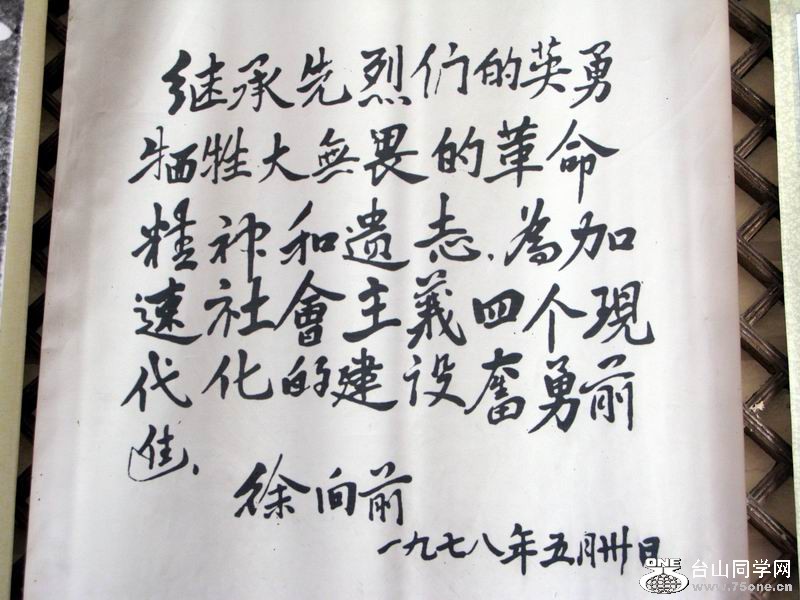 继承先烈们的英勇
牺牲大無畏的革命
精神和遗志、為加
速社會主義四个現
代化的建设奮勇前
進、
徐向前
一九七八年五月卅日
ONE
台山同学网
www.75one.cn